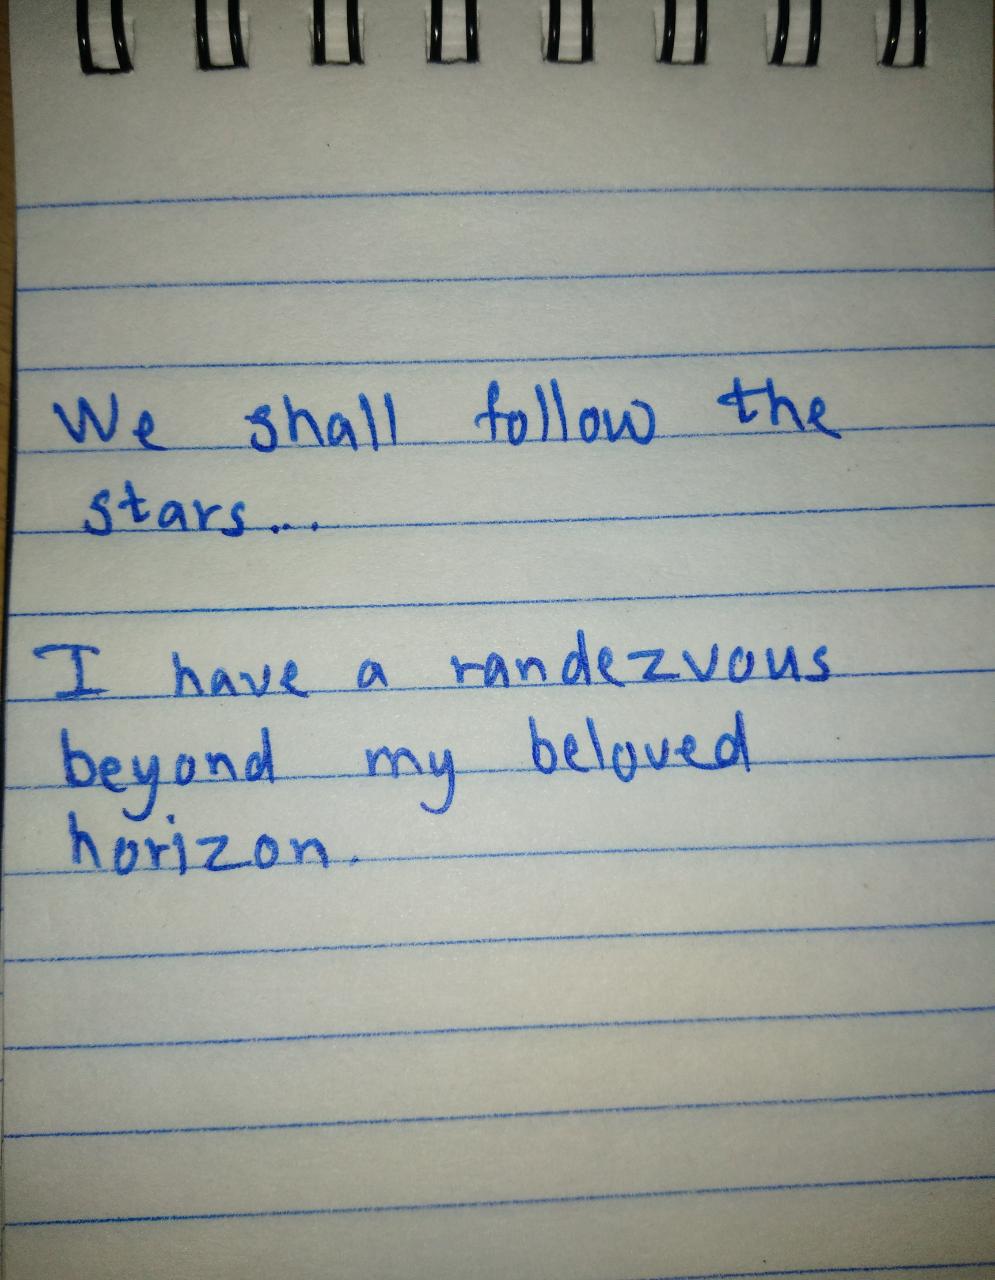 We shall follow the
stars...
I have a randezvous
beyond my beloved
horizon.